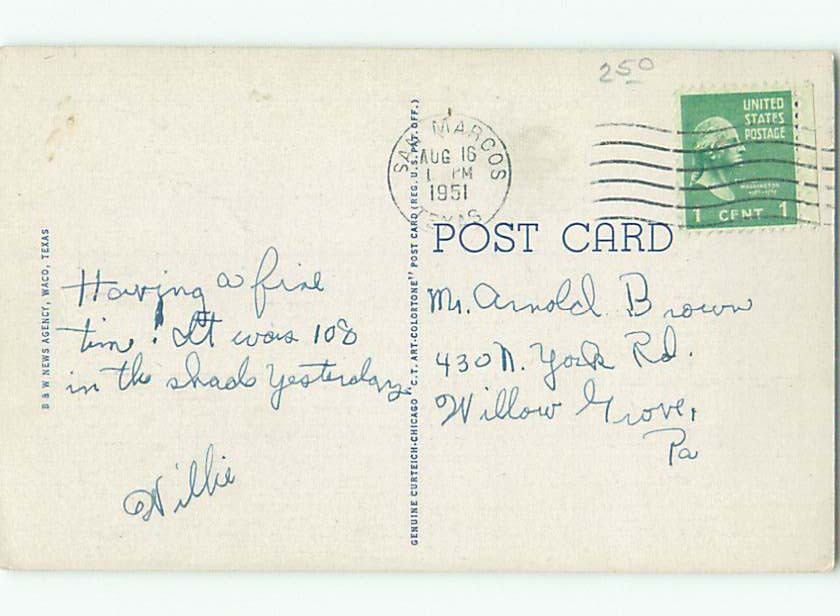 250
UNITED
STATES
POSTAGE
WASHINGTON
1 CENT 1
SAN MARCOS
AUG 16
1 PM
1951
TEXAS
POST CARD
B & W NEWS AGENCY, WACO, TEXAS
Having a fine
time! It was 108
in the shade yesterday.
Willie
GENUINE CURTEICH-CHICAGO "C.T. ART-COLORTONE" POST CARD (REG. U.S. PAT. OFF.)
Mr. Arnold Brown
430 N. York Rd.
Willow Grove,
Pa